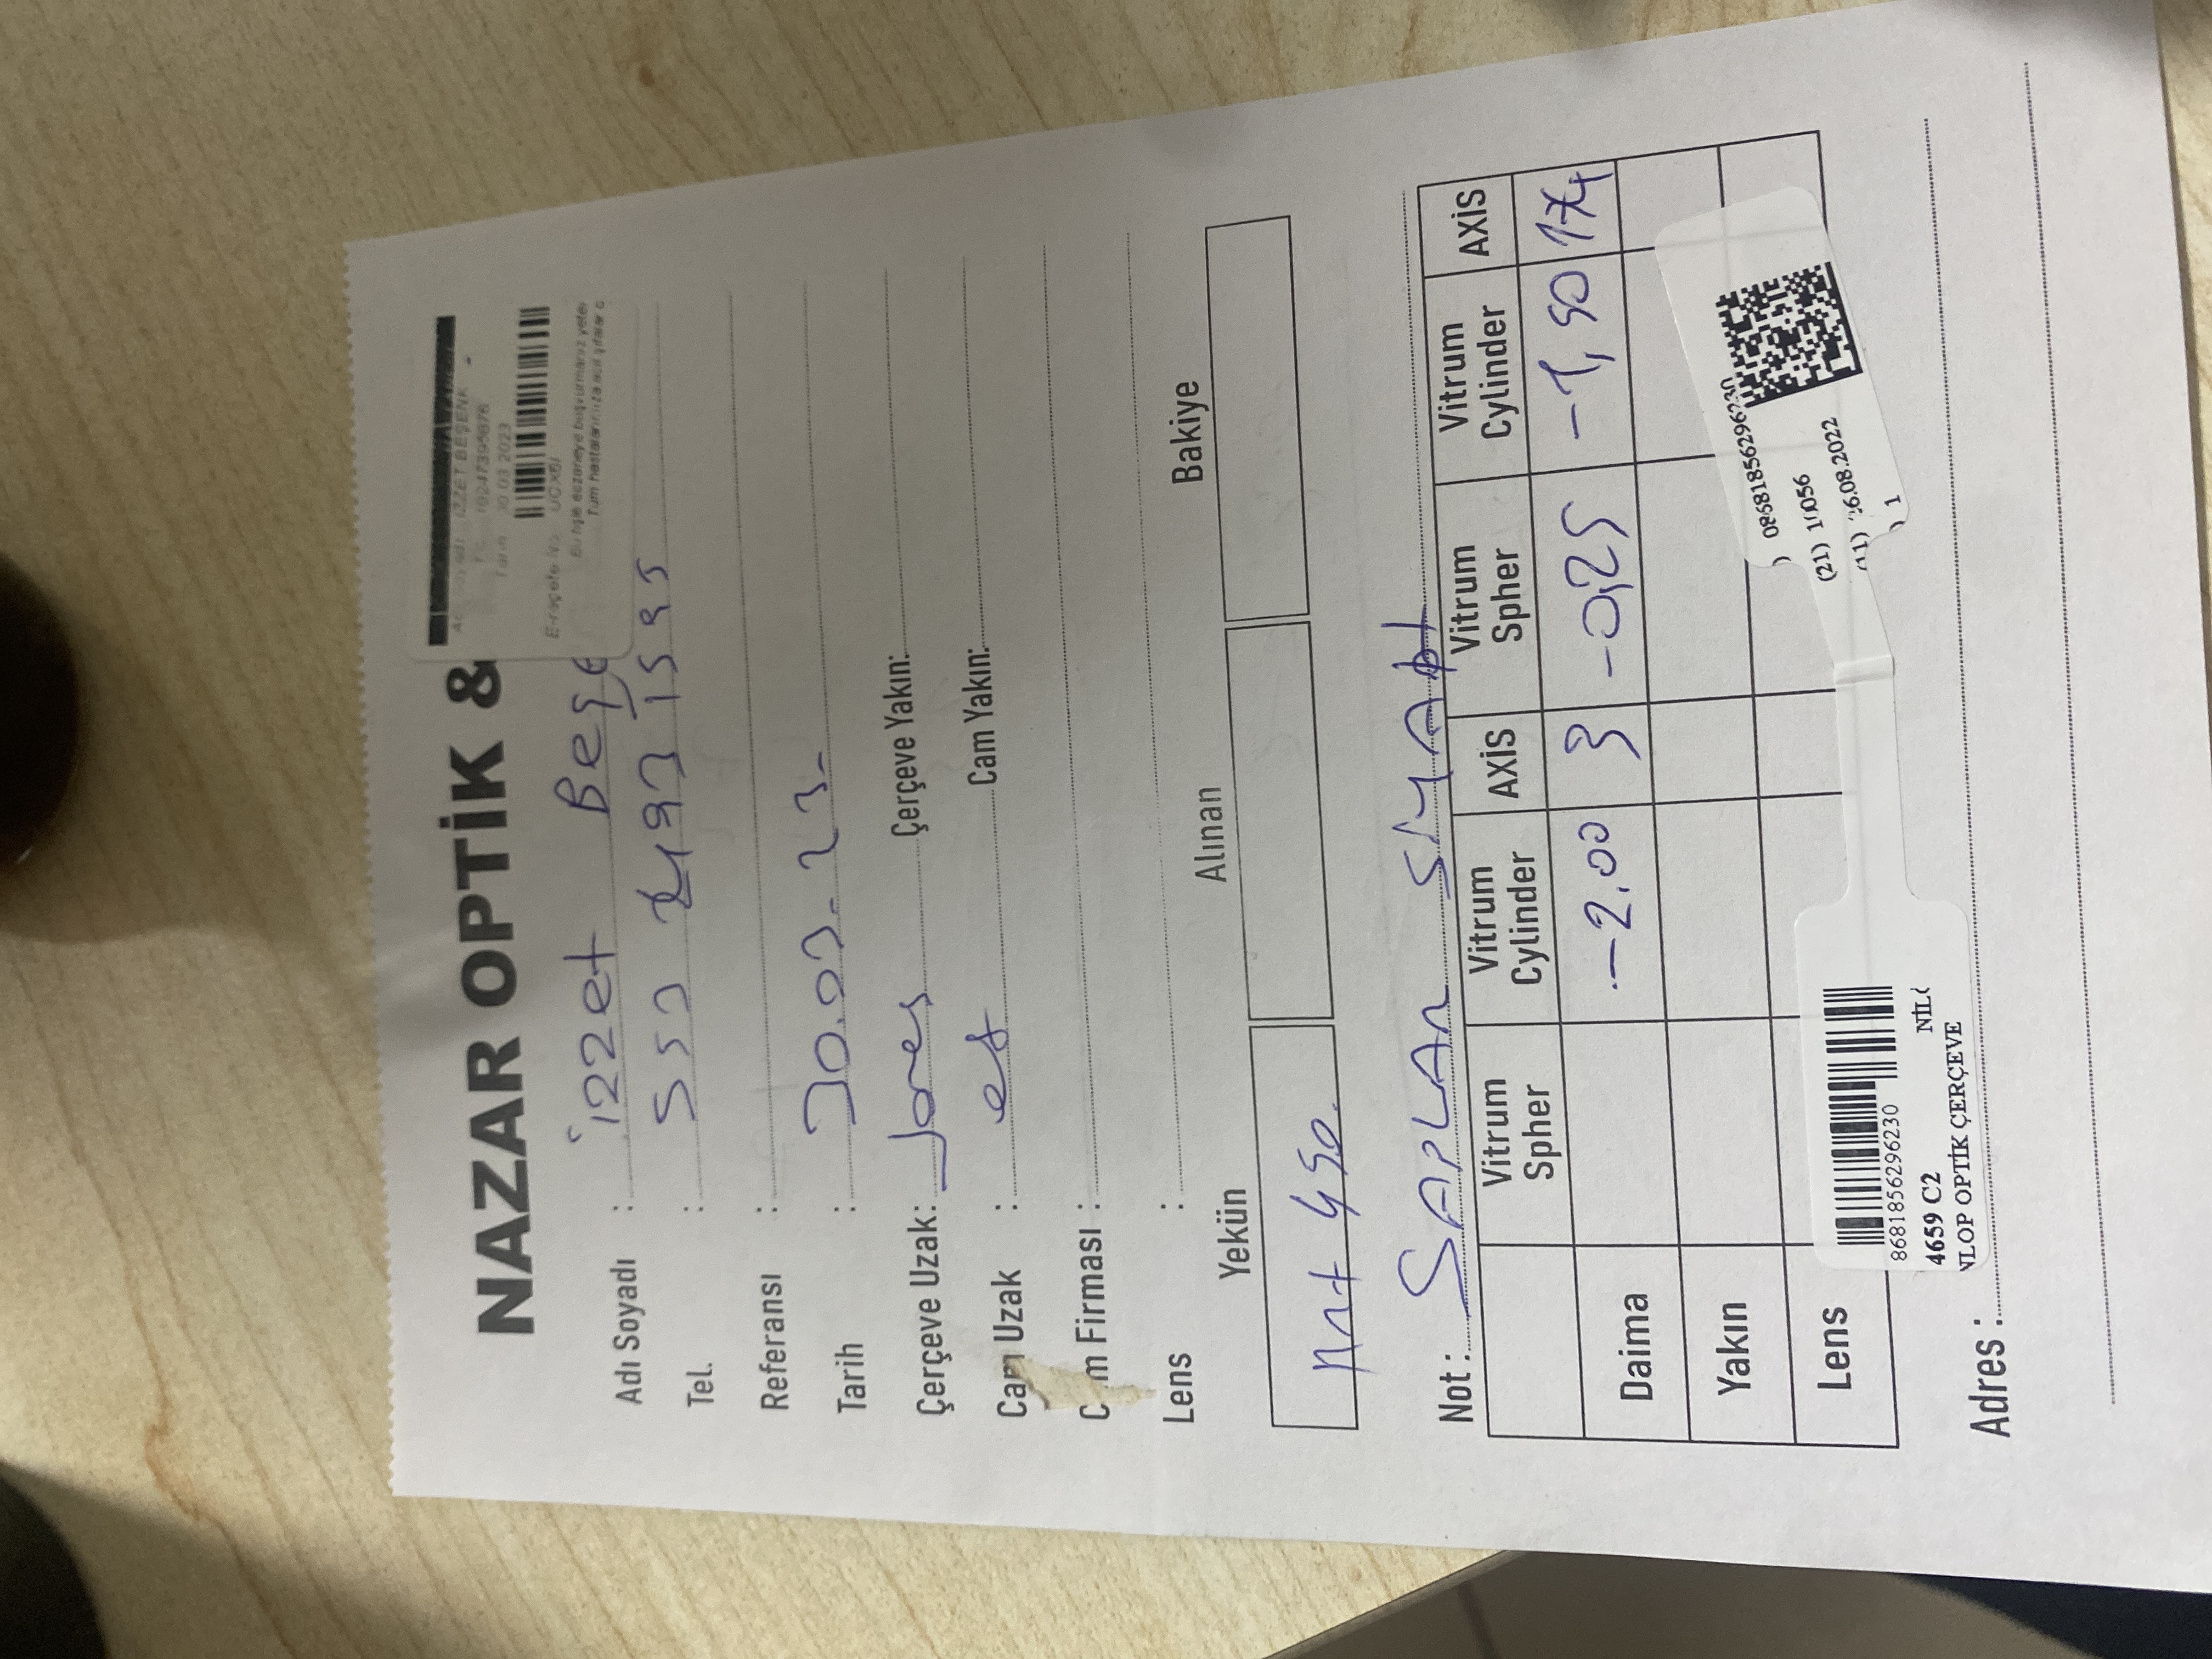 NAZAR OPTİK &
Adı Soyadı : İZZET BEŞENK
10247395876
Tarih 30.03.2023
E-reçete No: UCX6I
Bu fişle eczaneye başvurmanız yeter
Tüm hastalarımıza acil şifalar d
Adı Soyadı : izzet Beşe
Tel. : 553 493 1595
Referansı :
Tarih : 30.03.23.
Çerçeve Uzak: Jones Çerçeve Yakın:
Cam Uzak : Cam Yakın:
C m Firması :
Lens :
Yekün Alınan Bakiye
450.
Not : SAPLAR SİYAH
Vitrum Spher Vitrum Cylinder AXİS Vitrum Spher Vitrum Cylinder AXİS
Daima -2.00 3 -0,25 -1,50 174
Yakın
Lens
) 08681856296230
(21) 10056
(11) 26.08.2022
) 1
8681856296230
4659 C2 NİL
NLOP OPTİK ÇERÇEVE
Adres :